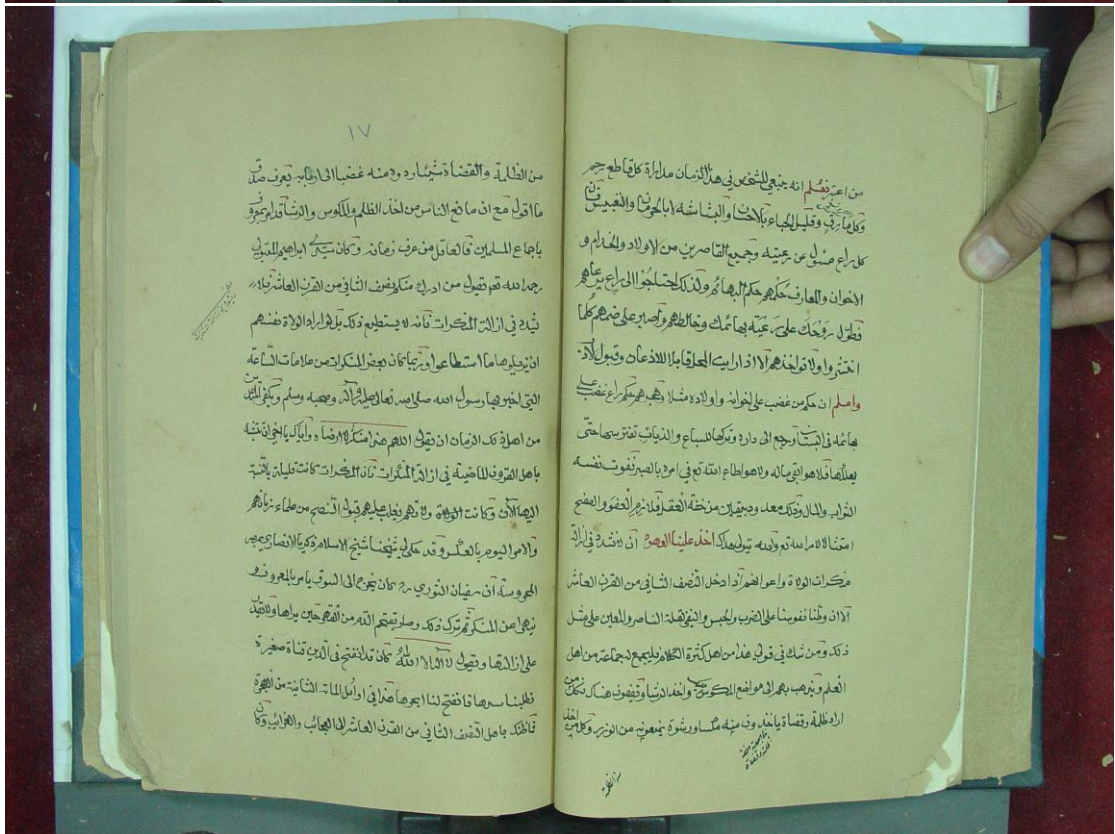 من اعتبر فعُلم انه ينبغي للشخص في هذا الزمان مداراة كل قاطع رحم
وكل مارق وقليل الحياء بالاحسان والبشاشة لا بالحرمان والتعبيس فان
كل راع مسئول عن رعيته وجميع القاصرين من الاولاد والخدام و
الاخوان والمعارف حكمهم حكم البهائم ولذلك احتاجوا الى راع يرعاهم
فطوّل روحك على رعيته بهائمك وخالطهم واصبر على ضمهم كلما
انتشروا ولا تواخذهم الا اذا رايت المحل قابلا للاذعان وقبول الادب
واعلم ان حكم من غضب على اخوانه واولاده مثلا وهجرهم حكم راع غضب على
بهائمه في ورجع الى داره وتركها للسباع والذياب تفترسها حتى
فلا هو ابقى ماله ولا هو اطاع الله تع في امره بالصبر ففوت نفسه
الثواب والمال وذلك معدود بيقين من خفة العقل فلازم العفو والصفح
امتثالا لامر الله تع والله يتولى هداك اخذ علينا العهود ان لا نشدد في ازالة
منكرات الولاة واعوانهم اذا دخل النصف الثاني من القرن العاشر
الا ان وطّنا نفوسنا على الضرب والحبس والنفي لقلة الناصر والمعين على مثل
ذلك ومن شك في قولي هذا من اهل كثرة الكلام فليجمع له جماعة من اهل
العلم ويذهب بهم الى مواضع المكوس واخذ الرشا ويقفون هناك فكل من
اراد ظلمة وقضاة ياخذون منه مكسا ورشوة يمنعونه من الوزن وكل من اخذ
من الظلمة
١٧
من الظلمة والقضاة شيئا ردوه منه غصبا الى اربابه يعرف صدق
ما اقول مع ان مانع الناس من اخذ الظلم والمكوس والرشا قدام بمعروف
باجماع المسلمين فالعاقل من عرف زمانه وكان سيدي ابراهيم المتبولي
رحمه الله تع يقول من ادرك منكم النصف الثاني من القرن العاشر فلا
يشدد في ازالة المنكرات فانه لا يستطيع ذلك بل لو اراد الولاة نفسهم
ان يزيلوها ما استطاعوا وربما كان بعض المنكرات من علامات الساعة
التي اخبر بها رسول الله صلى الله تعالى عليه وآله وصحبه وسلم ويكفي
من اهل ذلك الزمان ان يقول اللهم هذا منكر لا ارضاه واياك يا اخي ان تتشبه
باهل القرون الماضية في ازالة المنكرات فان المنكرات كانت قليلة بالنسبة
اليها الآن وكانت الولاة وغيرهم يغلب عليهم قبول النصح من علماء زمانهم
والامر اليوم بالعكس وقد حكى لي شيخنا شيخ الاسلام زكريا الانصاري بمصر
المحروسة ان سفيان الثوري رح كان يخرج الى السوق يامر بالمعروف و
ينهى عن المنكر ثم ترك ذلك وصار الدم من حين يراها ولا يقدر
على ازالتها ويقول لا اله الا الله كان قد انفتح في الدين قناة صغيرة
فطلبنا سدها فانفتح لنا ابحر هذا في اوائل المائة الثانية من الهجرة
فما ظنك باهل النصف الثاني من القرن العاشر الى العجائب والغرائب وكان